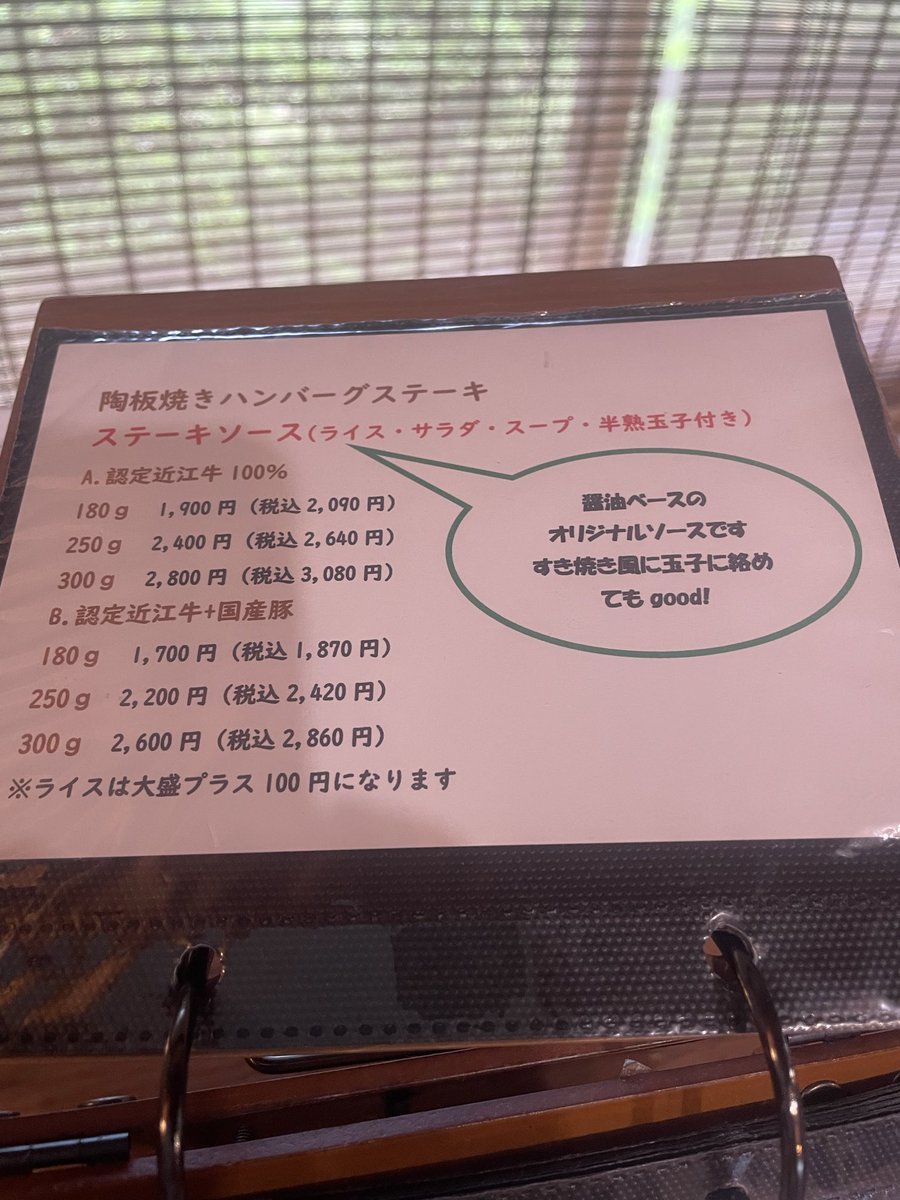 陶板焼きハンバーグステーキ
ステーキソース(ライス・サラダ・スープ・半熟玉子付き)
A.認定近江牛100%
180g 1,900円(税込2,090円)
250g 2,400円(税込2,640円)
300g 2,800円(税込3,080円)
B.認定近江牛+国産豚
180g 1,700円(税込1,870円)
250g 2,200円(税込2,420円)
300g 2,600円(税込2,860円)
※ライスは大盛プラス100円になります
醤油ベースの
オリジナルソースです
すき焼き風に玉子に絡め
てもgood!